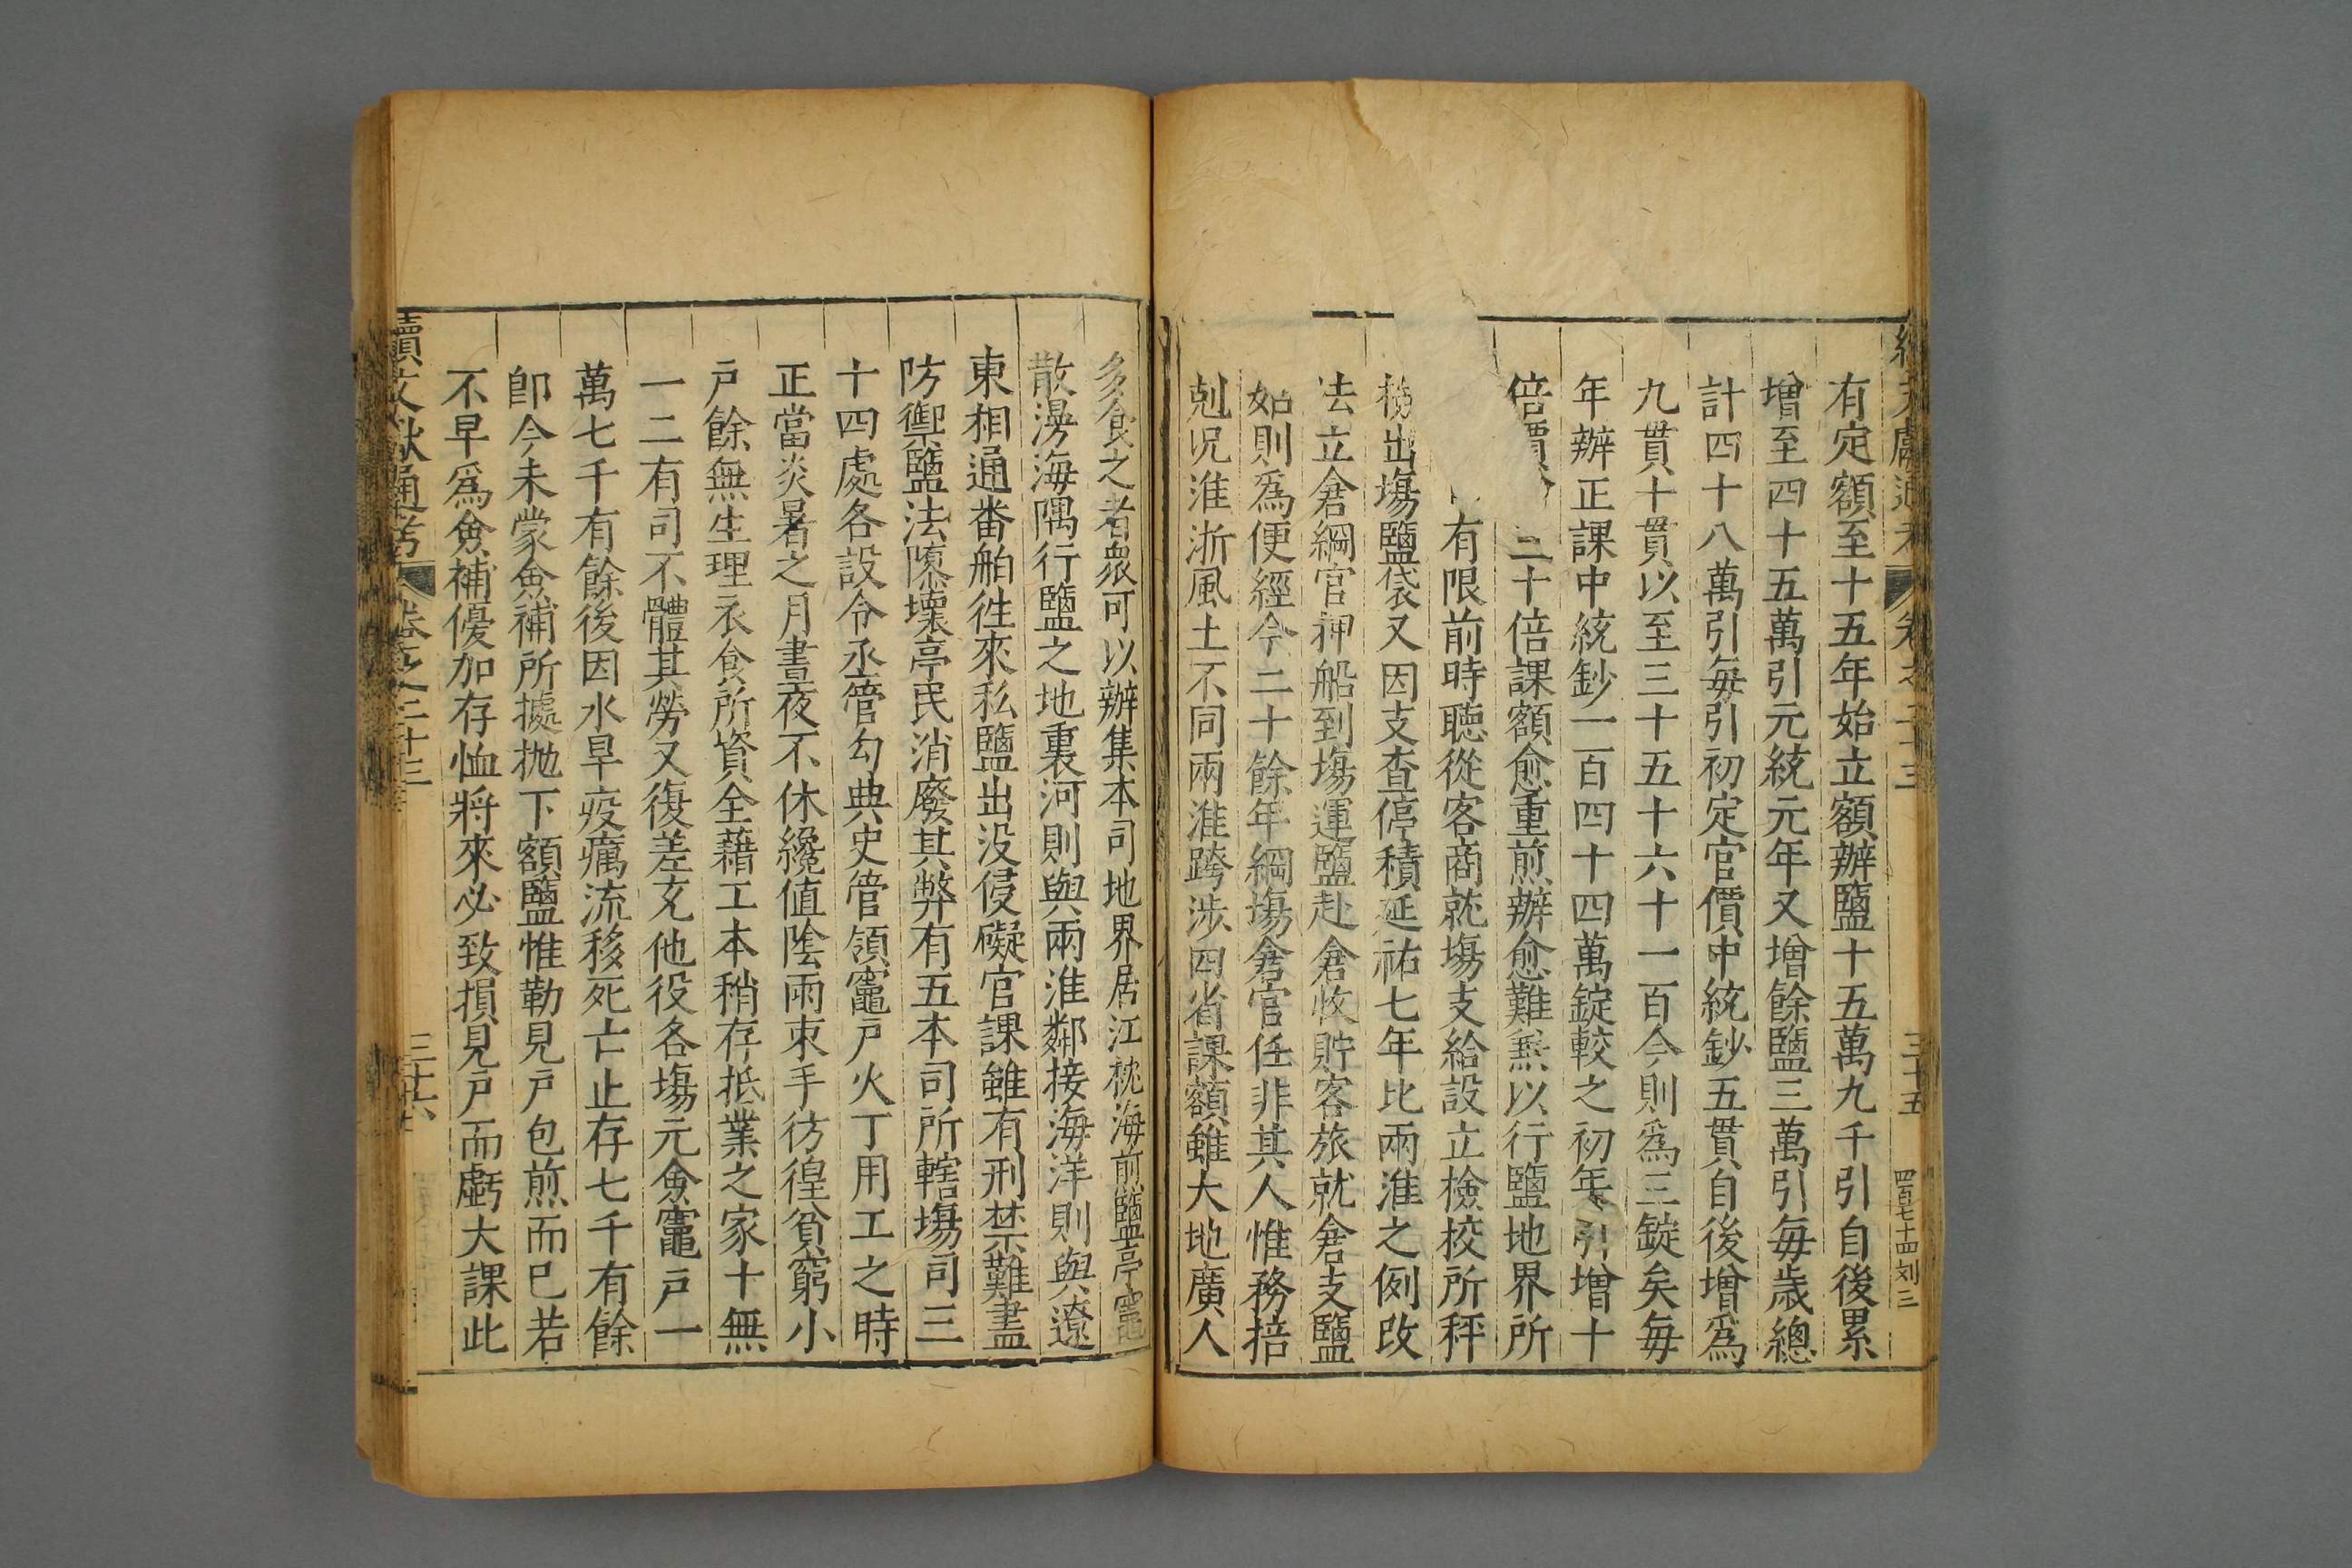 有定額至十五年始立額辦鹽十五萬九千引自後累
增至四十五萬引元統元年又增餘鹽三萬引每歲總
計四十八萬引每引初定官價中統鈔五貫自後增爲
九貫十貫以至三十五十六十一百今則爲三錠矣每
年辦正課中統鈔一百四十四萬錠較之初年引增十
倍價 三十倍課額愈重煎辦愈難無以行鹽地界所
有限前時聽從客商就塲支給設立檢校所秤
出塲鹽袋又因支查停積延祐七年比兩淮之例改
法立倉綱官押船到塲運鹽赴倉收貯客旅就倉支鹽
始則爲便經今二十餘年綱塲倉官任非其人惟務掊
剋况淮浙風土不同兩淮跨涉四省課額雖大地廣人
三十五
四百七十四刘三
多食之者衆可以辦集本司地界居江枕海煎鹽亭竈
散漫海隅行鹽之地裏河則與兩淮鄰接海洋則與遼
東相通番舶徃來私鹽出没侵礙官課雖有刑禁難盡
防禦鹽法隳壞亭民消廢其弊有五本司所轄塲司三
十四處各設令丞管勾典史管領竈戶火丁用工之時
正當炎暑之月晝夜不休纔值陰雨束手彷徨貧窮小
戶餘無生理衣食所資全藉工本稍存抵業之家十無
一二有司不體其勞又復差充他役各塲元僉竈戶一
萬七千有餘後因水旱疫癘流移死亡止存七千有餘
卽今未蒙僉補所據拋下額鹽惟勒見戶包煎而已若
不早爲僉補優加存恤將來必致損見戶而虧大課此
續文獻通考 卷之二十三
三十六